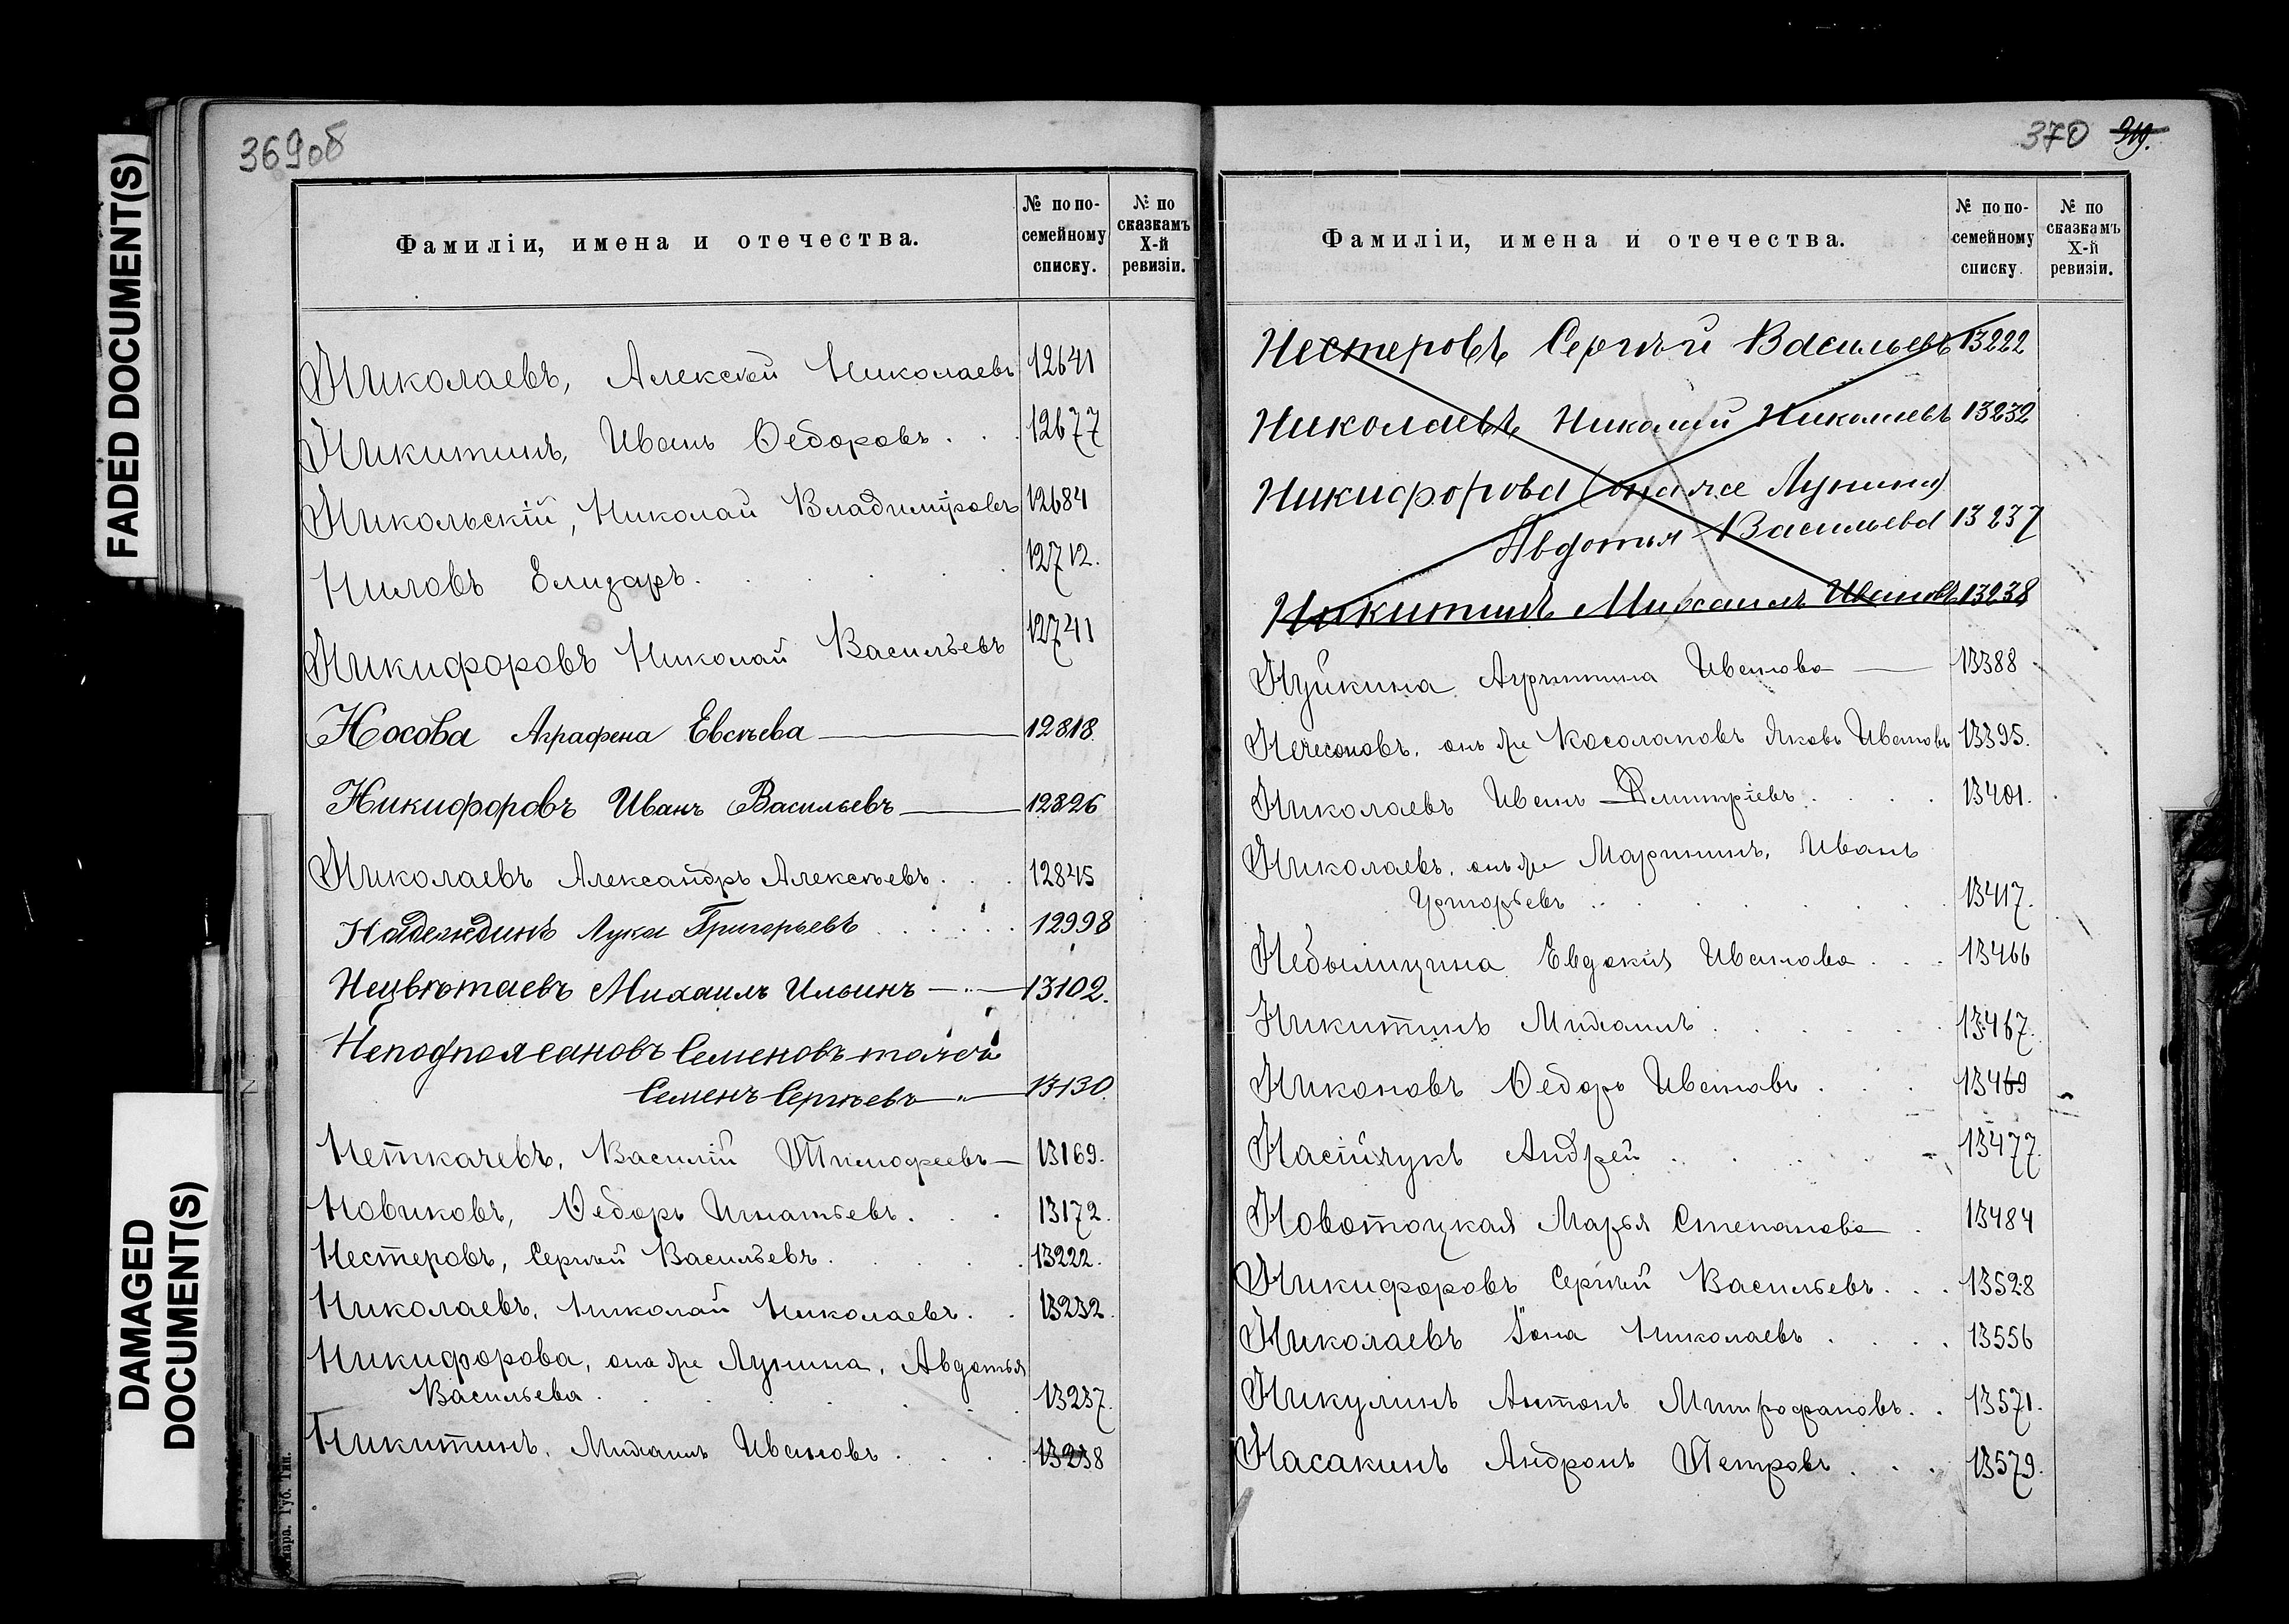 FADED DOCUMENT(S)
DAMAGED
DOCUMENT(S)
369об
Фамиліи, имена и отечества.
№ по по-
семейному
списку.
№ по
сказкамъ
X-й
ревизіи.
Николаевъ, Алексѣй Николаевъ 12641
Никитинъ, Иванъ Ѳедоровъ . . . 12677
Никольскій, Николай Владиміровъ 12684
Ниловъ Елизаръ. . . . . 12712.
Никифоровъ Николай Васильевъ 12741
Носова Аграфена Евсѣева — 12818
Никифоровъ Иванъ Васильевъ — 12826
Николаевъ Александръ Алексѣевъ . . . 12845
Надеждинъ Лука Григорьевъ . . . . . 12998
Нецвѣтаевъ Михаилъ Ильинъ — 13102.
Неподпоясановъ Семеновъ тожъ
Семенъ Сергѣевъ — 13130.
Неткачевъ, Василій Тимофеевъ — 13169.
Новиковъ, Ѳедоръ Игнатьевъ. . . 13172.
Нестеровъ, Сергѣй Васильевъ. . . . . 13222.
Николаевъ, Николай Николаевъ. . 13232.
Никифорова, она же Лунина, Авдотья
Васильева . . . . . 13237.
Никитинъ, Михаилъ Ивановъ . . . . 13238
кара. Губ. Тип.
370 319.
Фамиліи, имена и отечества.
№ по по-
семейному
списку.
№ по
сказкамъ
X-й
ревизіи.
Нестеровъ Сергѣй Васильевъ 13222
Николаевъ Николай Николаевъ 13232
Никифорова (она же Лунина)
Авдотья Васильева 13237
Никитинъ Михаилъ Ивановъ 13238
Нуйкина Иванова — 13388
онъ же Косолаповъ Яковъ Ивановъ 13395.
Николаевъ Иванъ Дмитріевъ . . . . 13401.
Николаевъ, онъ же Марининъ, Иванъ
Григорьевъ . . . . . . 13417.
Небылицина Евдокія Иванова . . . 13466
Никитинъ Михаилъ . . . . . 13467.
Никоновъ Ѳедоръ Ивановъ . . . 13469
Насійчукъ Андрей . . . . . 13477.
Новотоцкая Марья Степанова . 13484
Никифоровъ Сергѣй Васильевъ. . . 13528
Николаевъ Іона Николаевъ . . . . 13556
Никулинъ Антонъ Митрофановъ. . 13571.
Насакинъ Андронъ Петровъ . . . 13579.